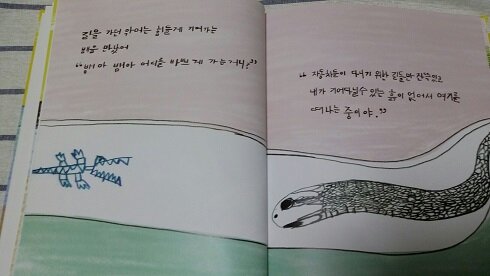 길을 가던 악어는 힘들게 기어가는
뱀을 만났어
"뱀아 뱀아 어디를 바쁘게 가는거니?"
"자동차들이 다니기 위한 길들만 잔뜩있고
내가 기어다닐수 있는 흙이 없어서 여기를
떠나는 중이야."